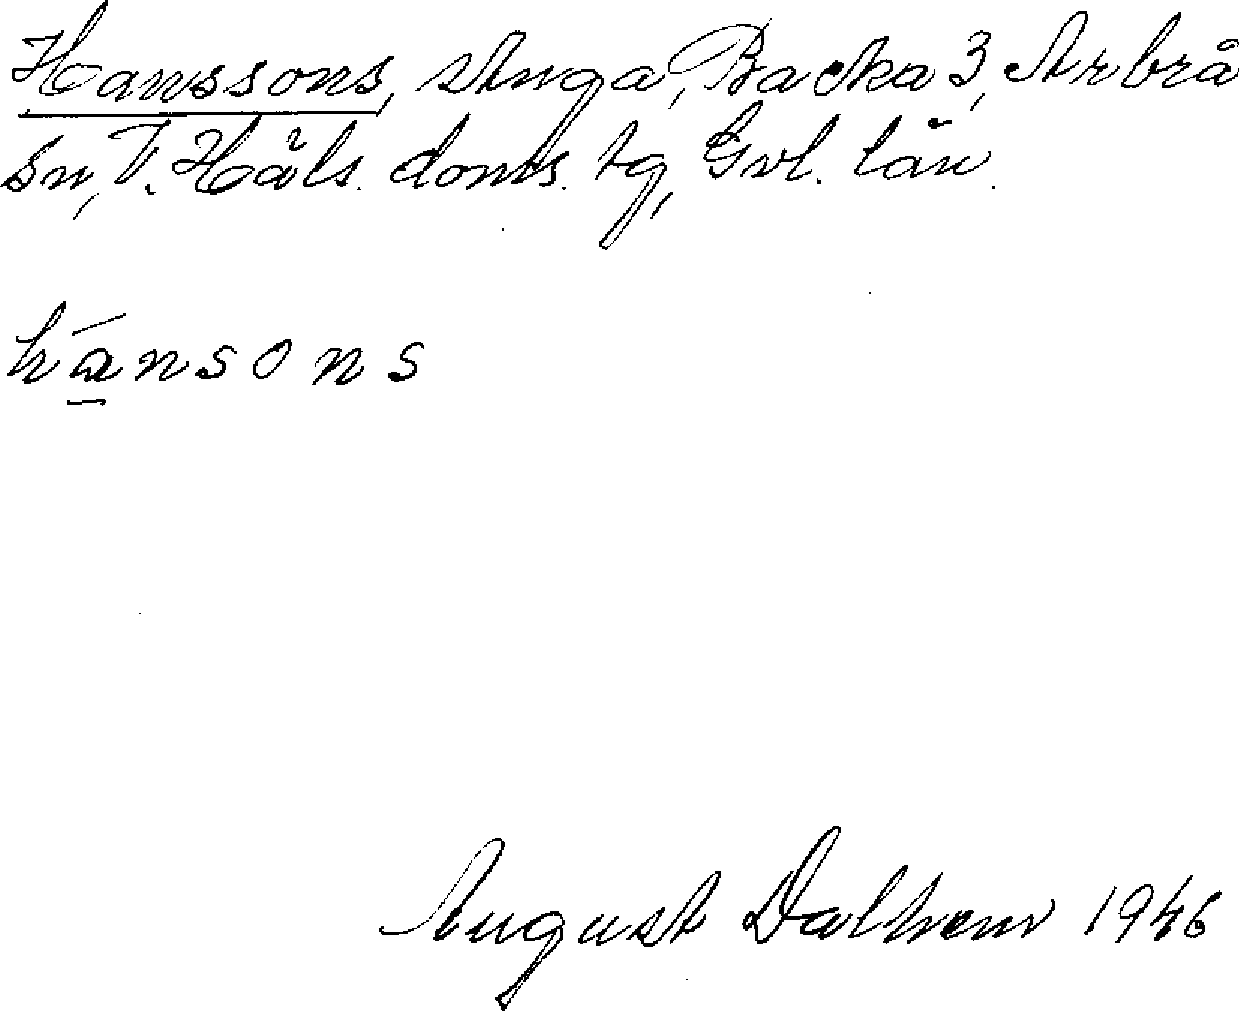 Hanssons, stuga, Backa 3, Arbrå
sn, V. Häls. doms. tg, Gvl. län.
hánsons
August Dalhem 1946